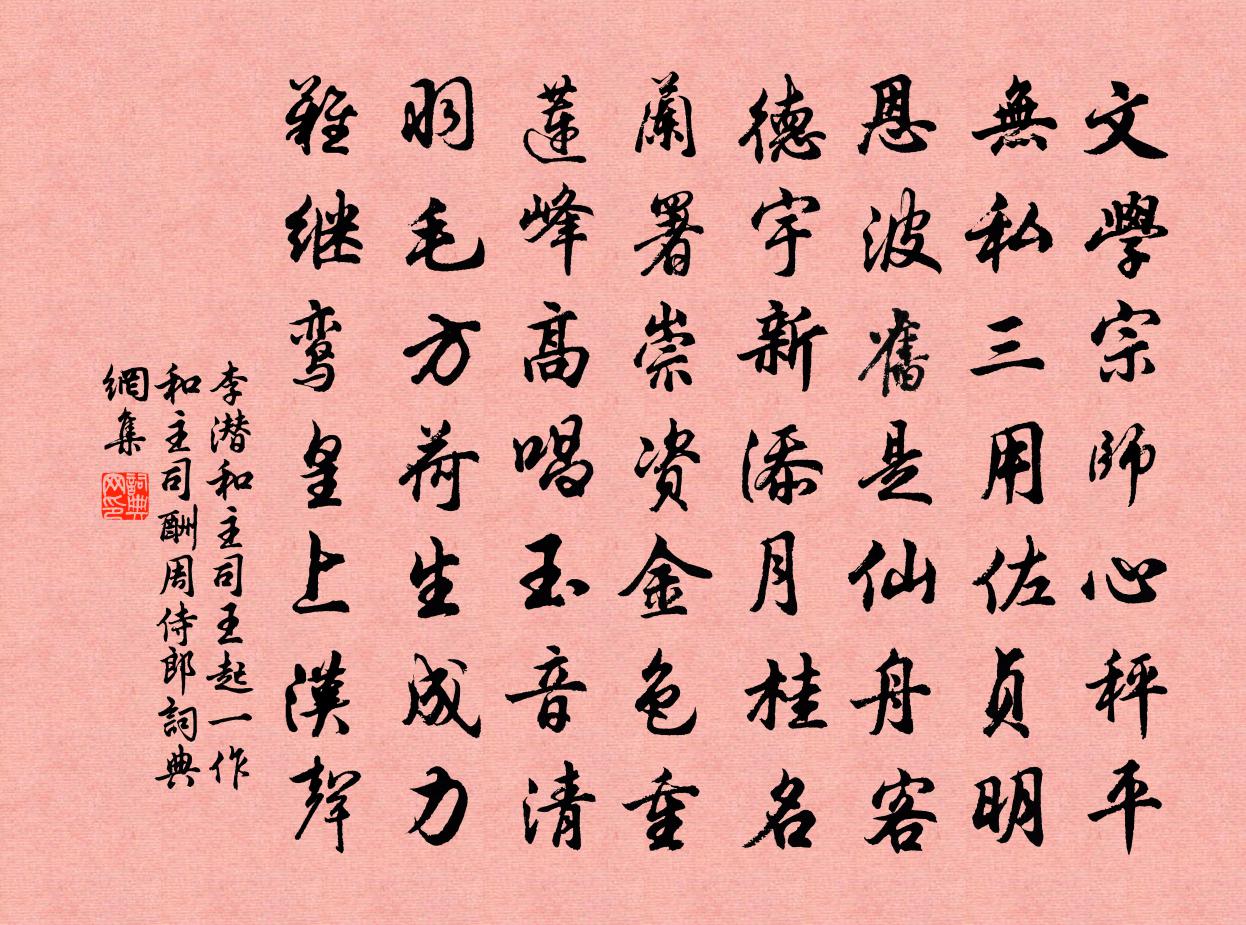 文學宗師心秤平
無私三用佐貞明
恩波舊是仙舟客
德宇新添月桂名
蘭署崇资金色重
蓮峰高唱玉音清
羽毛方荷生成力
難继鸾皇上漢聲
李潜和主司王起一作
和主司酬周侍郎詞典
網集
詞典
网印